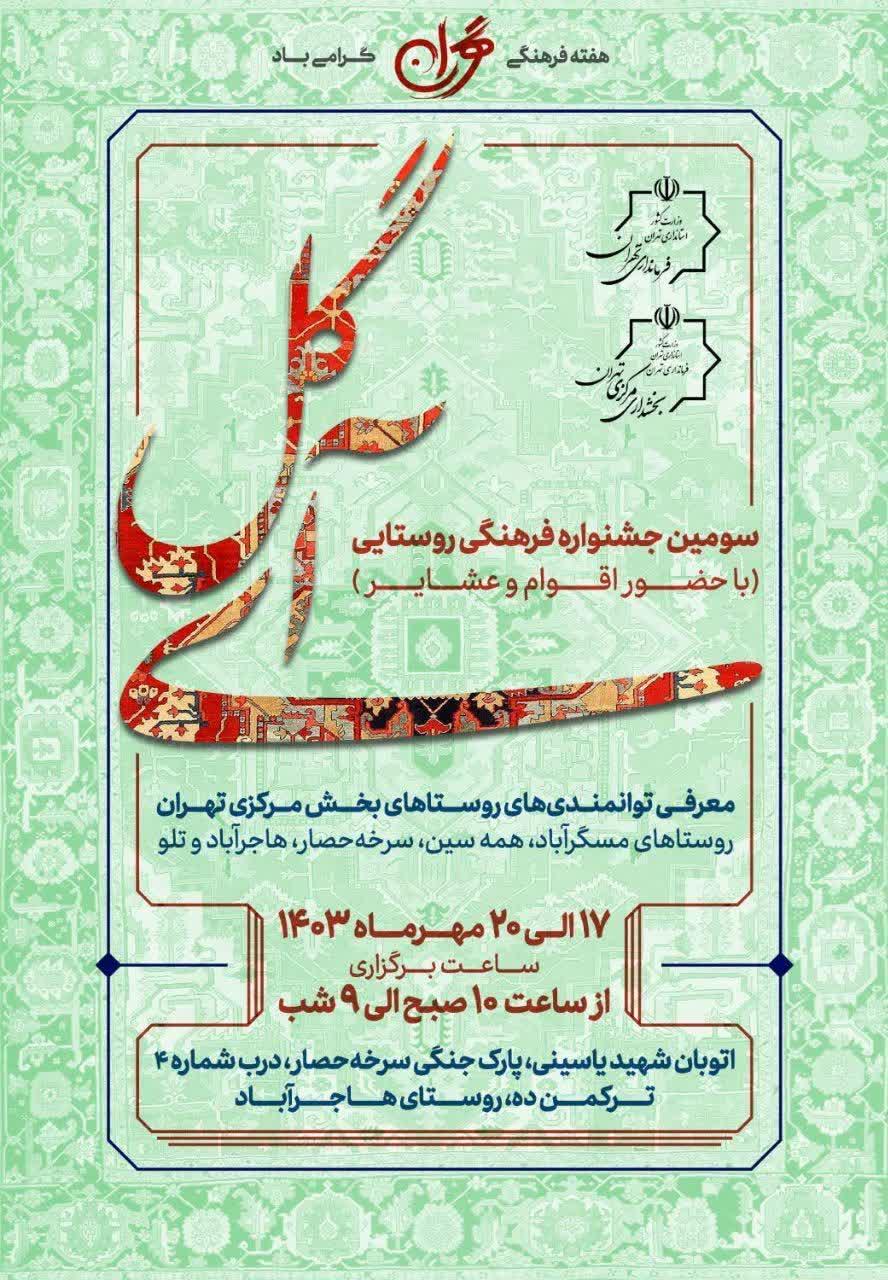 هفته فرهنگی تهران گرامی باد
وزارت کشور
استانداری تهران
فرمانداری تهران
وزارت کشور
استانداری تهران
فرمانداری تهران
بخشداری مرکزی تهران
سومین جشنواره فرهنگی روستایی
(با حضور اقوام و عشایر)
معرفی توانمندی‌های روستاهای بخش مرکزی تهران
روستاهای مسگرآباد، همه سین، سرخه‌حصار، هاجرآباد و تلو
۱۷ الی ۲۰ مهرماه ۱۴۰۳
ساعت برگزاری
از ساعت ۱۰ صبح الی ۹ شب
اتوبان شهید یاسینی، پارک جنگی سرخه‌حصار، درب شماره ۴
ترکمن ده، روستای هاجرآباد